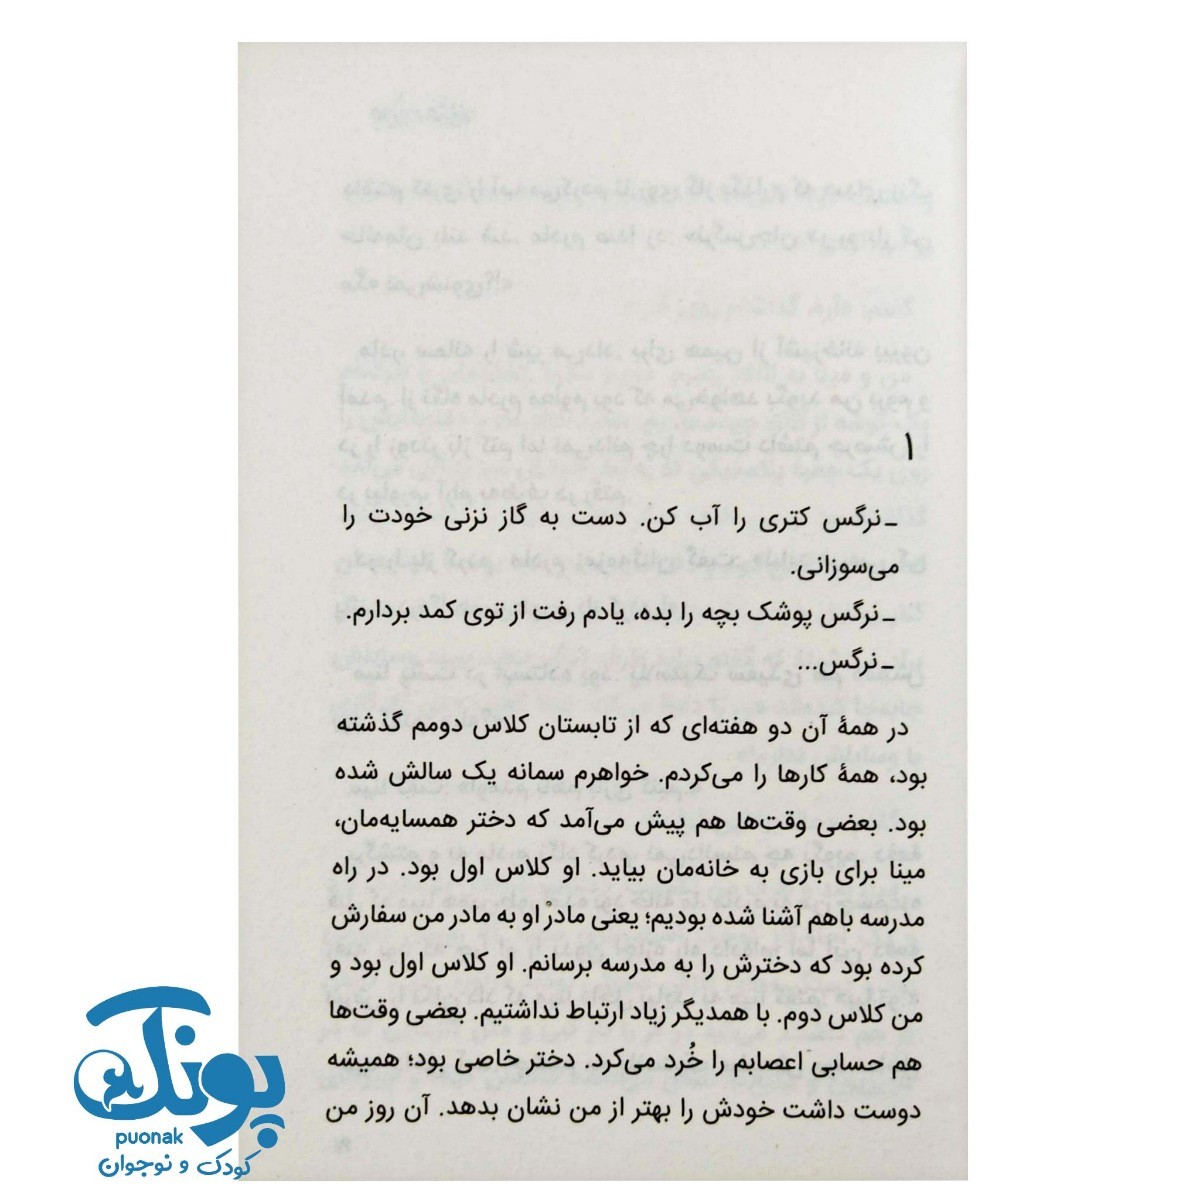 ۱
ـ نرگس کتری را آب کن. دست به گاز نزنی خودت را
می‌سوزانی.
ـ نرگس پوشک بچه را بده، یادم رفت از توی کمد بردارم.
ـ نرگس...
در همهٔ آن دو هفته‌ای که از تابستان کلاس دومم گذشته
بود، همهٔ کارها را می‌کردم. خواهرم سمانه یک سالش شده
بود. بعضی وقت‌ها هم پیش می‌آمد که دختر همسایه‌مان،
مینا برای بازی به خانه‌مان بیاید. او کلاس اول بود. در راه
مدرسه باهم آشنا شده بودیم؛ یعنی مادرْ او به مادر من سفارش
کرده بود که دخترش را به مدرسه برسانم. او کلاس اول بود و
من کلاس دوم. با همدیگر زیاد ارتباط نداشتیم. بعضی وقت‌ها
هم حسابی اعصابم را خُرد می‌کرد. دختر خاصی بود؛ همیشه
دوست داشت خودش را بهتر از من نشان بدهد. آن روز من
پونک
puonak
کودک و نوجوان